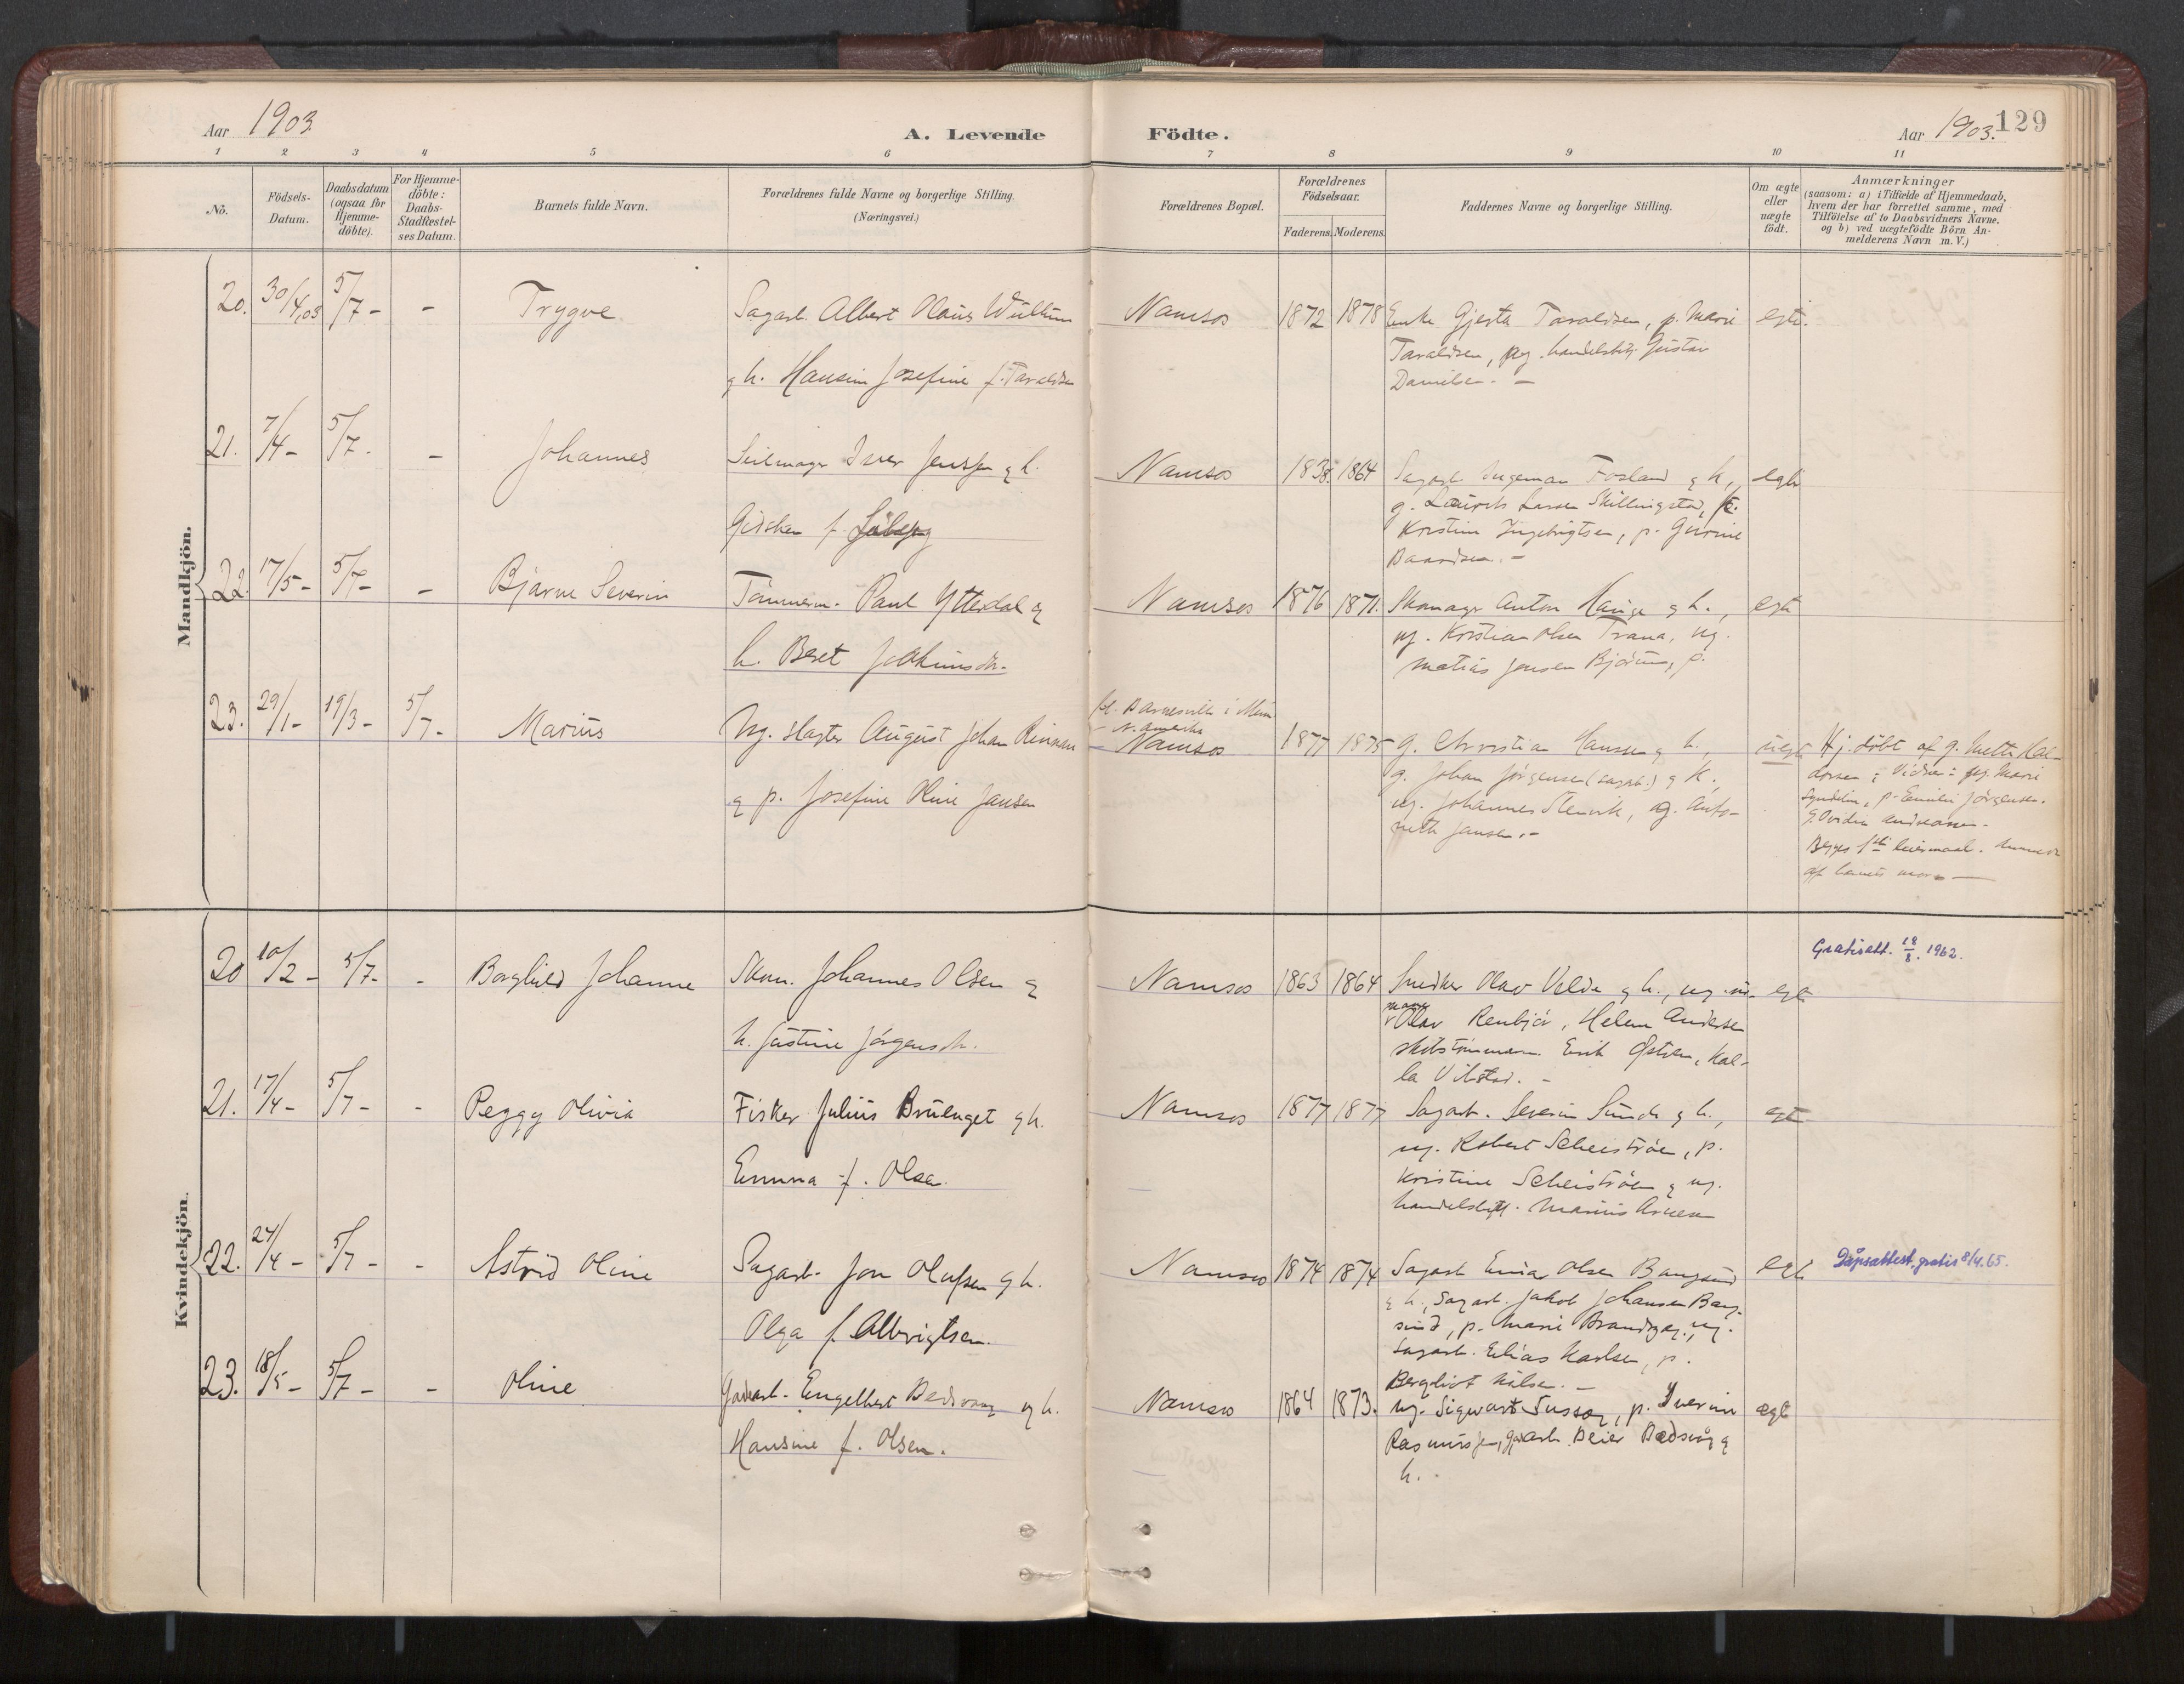 Aar 1903. A. Levende Födte. Aar 1903. 129
1 2 3 4 5 6 7 8 9 10 11
No.
Födsels-Datum.
Daabsdatum (ogsaa for Hjemme-döbte).
For Hjemme-döbte: Daabs-Stadfæstel-ses Datum.
Barnets fulde Navn.
Forældrenes fulde Navne og borgerlige Stilling.
(Næringsvei.)
Forældrenes Bopæl.
Forældrenes Födselsaar.
Faderens. Moderens.
Faddernes Navne og borgerlige Stilling.
Om ægte eller uægte födt.
Anmærkninger
(saasom: a) i Tilfælde af Hjemmedaab,
hvem der har forrettet samme, med
Tilföielse af to Daabsvidners Navne.
og b) ved uægtefödte Börn An-
melderens Navn m. V.)
Mandkjön.
20. 30/4,03 5/7 - - Trygve Sagarb. Albert Olaus Wullum Namsos 1872 1878 Enke Gjerta Taraldsen, p. Marie egte.
g h. Hansine Josefine f. Taraldsen
Taraldsen, pg. handelsbetj. Gustav
Danielsen. -
21. 7/4 - 5/7 - - Johannes Seilmager Iver Jenssen g h. Namsos 1838. 1864 Sagarb. Ingeman Fosland g h., egte
Gidsken f.
g. Laurits Larsen Skillingstad, p.
Kristine Ingebrigtsen, p. Gurine
Baardsen. -
22. 17/5 - 5/7 - - Bjarne Severin Tömmerm. Paul Ytterdal g Namsos 1876 1871. Skomager Anton Hauge g h., egte
h. Beret Joakimsdtr.
ug. Kristian Olsen Trana, ug.
Matias Jensen Bjørum, p.
23. 29/1 - 19/3 - 5/7 - Marius Ug. slagter August Johan Rinnan
N. Amerika
Namsos 1877 1875 g. Christian Hansen g h., uegte Hj. döbt af g. Mette Hal-
g p. Josefine Oline Jansen
g. Johan Jörgensen (sagarb.) g h.,
ug. Johannes Stenvik, g. Anto-
nette Jansen. -
dorsen; Vidner: pg. Marie
p. Emilie Jörgensen.
g. Ovidia Andreasen.
Begges 1ste leiermaal.
af barnets mor -
Kvindekjön.
20 10/2 - 5/7 - - Borghild Johanne Skom. Johannes Olsen g Namsos 1863 1864 Snedker Olav Velde g h., ug. egte Gratisatt. 18/8. 1962.
h. Justine Jörgensdtr.
Olav Renbjör, Helene Andersen
skibstömmerm. Erik
la Vibstad. -
21. 17/4 - 5/7 - - Peggy Olivia Fisker Julius Bruenget g h. Namsos 1877 1877 Sagarb. Severin Sunde g h., egte
Emma f. Olsen.
ug. Robert Scheiströen, p.
Kristine Scheiströen g ug.
handelsbetj. Marius Arnesen
22. 24/4 - 5/7 - - Astrid Oline Sagarb. Jon Olufsen g h. Namsos 1874 1874 Sagarb. Einar Olsen Bangsund egte Dåpsattest gratis 8/4.65.
Olga f. Albrigtsen.
g h., Sagarb. Jakob Johansen Bang-
sund, p. Marie Brandzæg, ug.
Sagarb. Elias Karlsen, p.
Bergliot Nilsen. -
23. 18/5 - 5/7 - - Oline Gadearb. Engelbert Bedsvaag g h. Namsos 1864 1873. ug. Sigwart Sussæg, p. Iverine ægte
Hansine f. Olsen.
Rasmussen, gadearb. Peier Bedsvåg g
h.